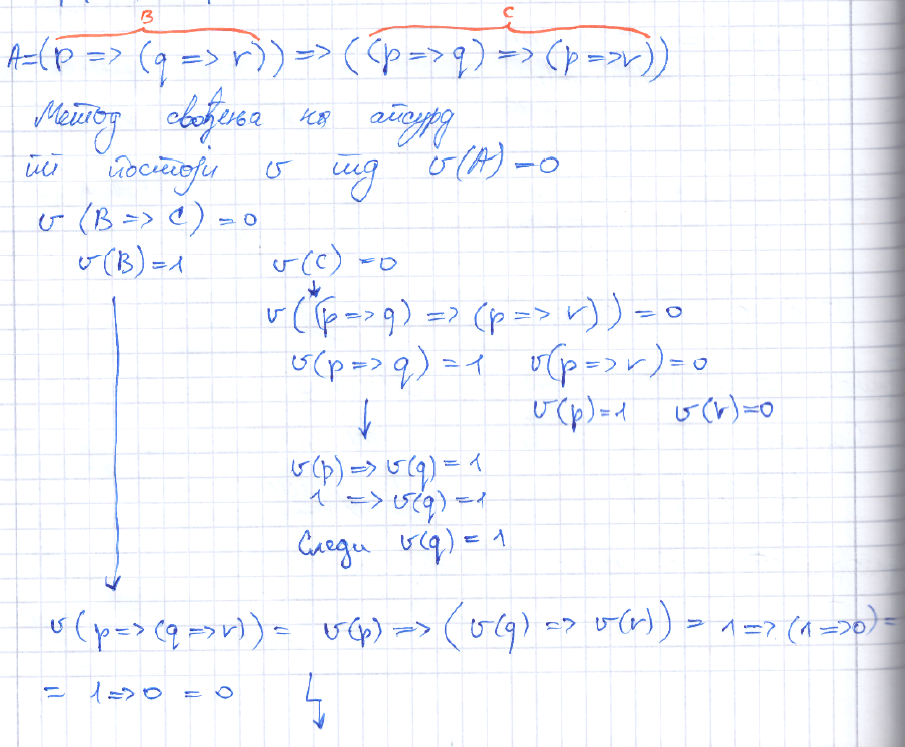 B C
A=(p => (q => r)) => ((p => q) => (p => r))
Метод свођења на апсурд
пп постоји v тд v(A) = 0
v (B => C) = 0
v(B) = 1 v(C) = 0
v((p => q) => (p => r)) = 0
v(p => q) = 1 v(p => r) = 0
v(p) = 1 v(r) = 0
v(p) => v(q) = 1
1 => v(q) = 1
Следи v(q) = 1
v(p => (q => r)) = v(p) => (v(q) => v(r)) = 1 => (1 => 0) =
= 1 => 0 = 0